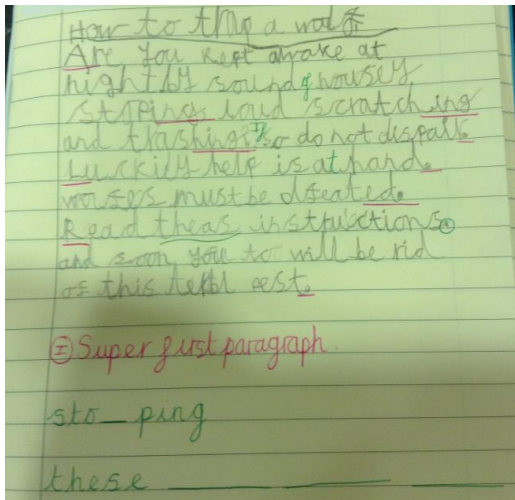 How to trap a wolf
Are you kept awake at
night by sound of housey
stoping loud scratching
and trashing if so do not dispair.
Luckily help is at hand.
must be dfeated.
Read theas instructions
and soon you to will be rid
of this pest.
I Super first paragraph.
sto_ping
these